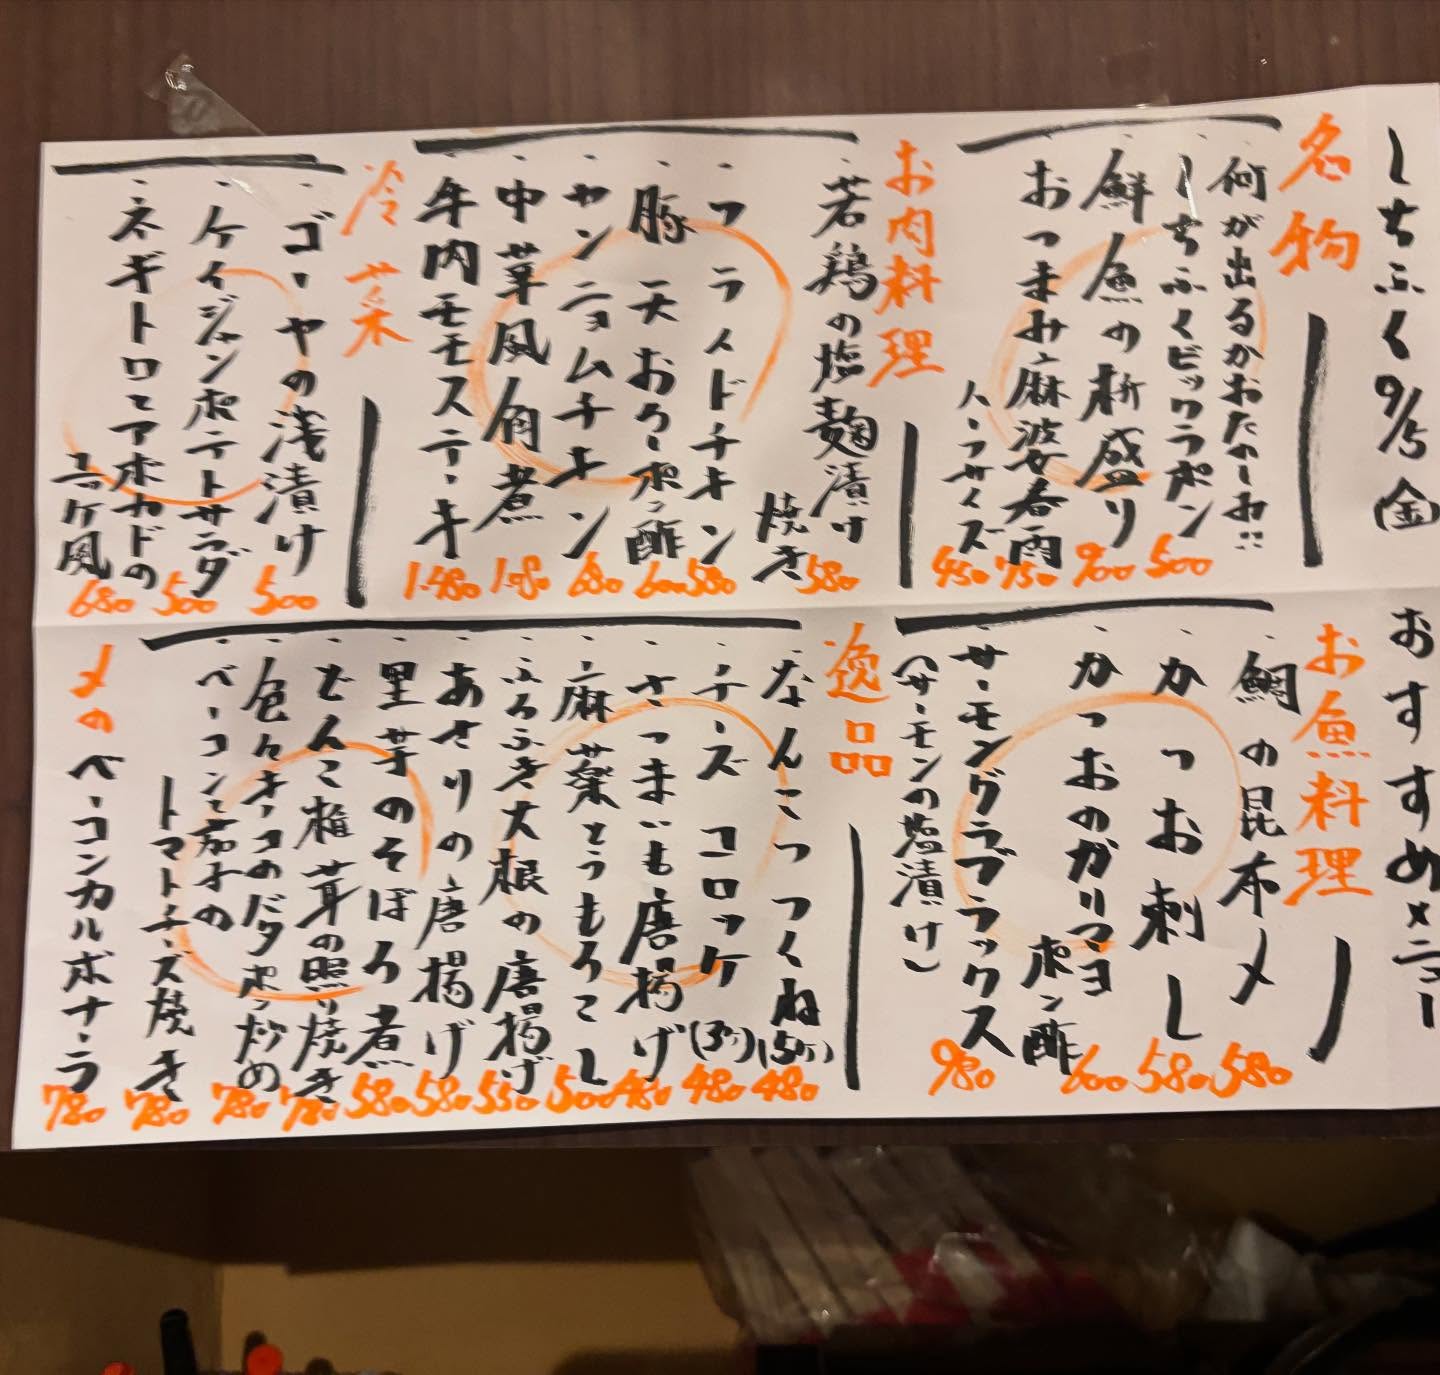 しちふく 9/5 (金) おすすめメニュー
名物
・何が出るかおたのしみ!!
しちふくビックラポン 500
・鮮魚の桝盛り 900
・おつまみ麻婆春雨 750
ハーフサイズ 450
お肉料理
・若鶏の塩麹漬け
焼き 580
・フライドチキン 580
・豚天おろしポン酢 600
・ヤンニョムチキン 680
・中華風角煮 1.080
・牛肉モモステーキ 1.480
冷菜
・ゴーヤの浅漬け 500
・ケイジャンポテトサラダ 500
・ネギトロとアボカドの
ユッケ風 680
お魚料理
・鯛の昆布〆 580
・かつお刺し 580
・かつおのガリマヨ
ポン酢 600
・サーモングラブラックス
(サーモンの塩漬け) 980
逸品
・なんこつつくね(5ケ) 480
・チーズコロッケ(3ケ) 480
・さつまいも唐揚げ 480
・麻薬とうもろこし 500
・ふろふき大根の唐揚げ 550
・あさりの唐揚げ 580
・里芋のそぼろ煮 580
・どんこ椎茸の照り焼き 780
・色々キノコのバタポン炒め 780
・ベーコンと茄子の
トマトチーズ焼き 780
〆のベーコンカルボナーラ 780